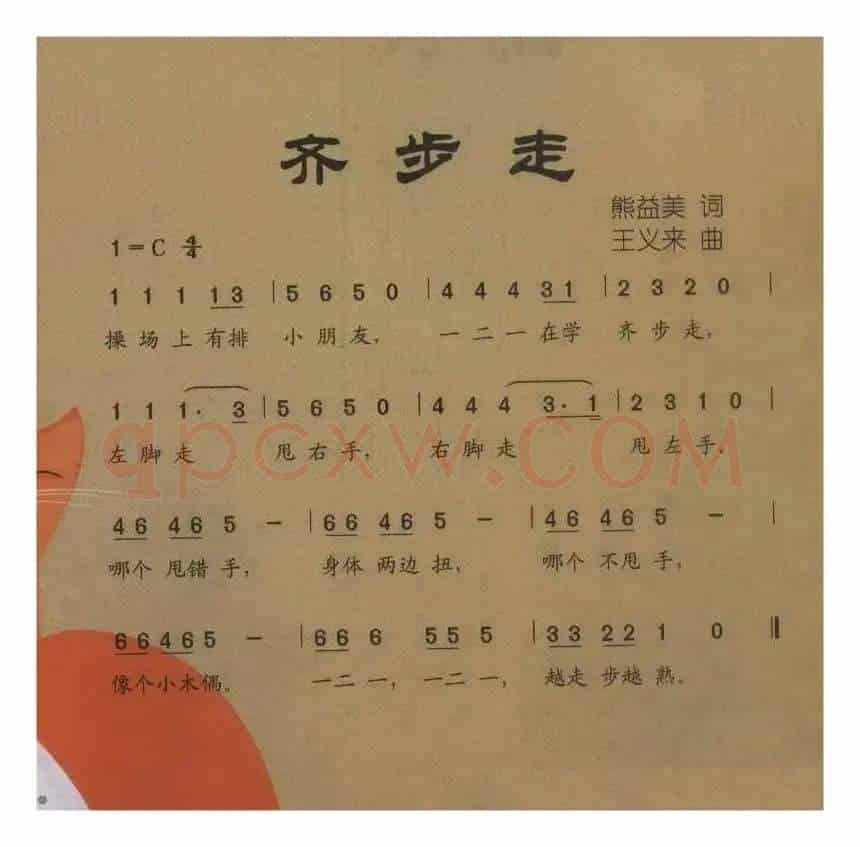 齐步走
熊益美 词
王义来 曲
1=C 4/4
1 1 1 13 | 5 6 5 0 | 4 4 4 31 | 2 3 2 0 |
操场上有排 小朋友, 一二一在学 齐步走,
1 1 1· 3 | 5 6 5 0 | 4 4 4 3·1 | 2 3 1 0 |
左脚走 甩右手, 右脚走 甩左手。
qpcxw.COM
46 46 5 - | 66 46 5 - | 46 46 5 - |
哪个甩错手, 身体两边扭, 哪个不甩手,
66 46 5 - | 66 6 55 5 | 33 22 1 0 ‖
像个小木偶。 一二一, 一二一, 越走步越熟。